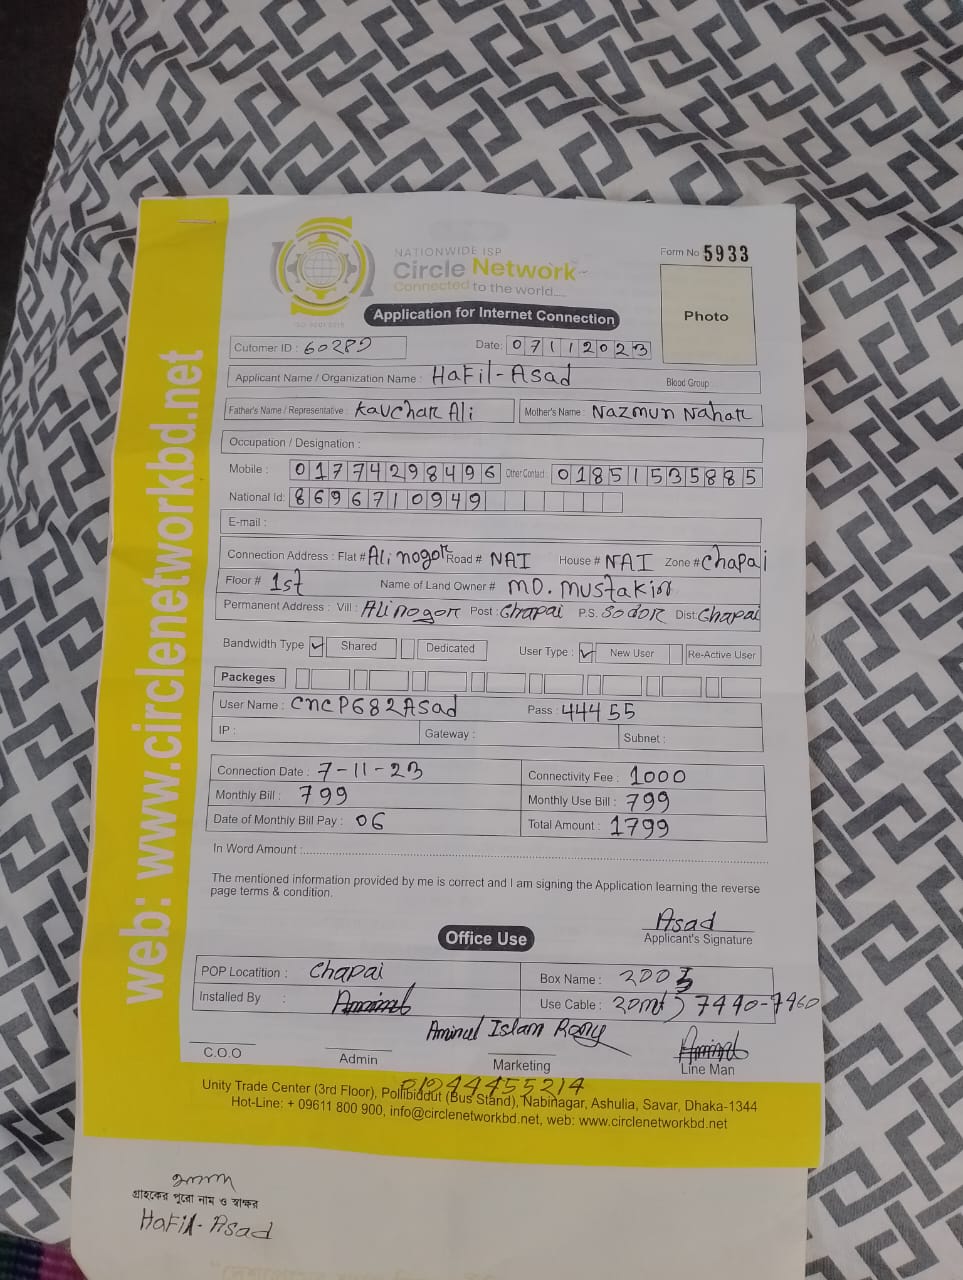 NATIONWIDE ISP
Circle Network
Connected to the world.....
ISO 9001:2015
Form No 5933
Photo
Application for Internet Connection
Cutomer ID : 60289
Date: 07112023
Applicant Name / Organization Name : Hafil-Asad
Blood Group
Father's Name / Representative : Kauchar Ali
Mother's Name : Nazmun Nahar
Occupation / Designation :
Mobile : 01774298496 Other Contact : 01851535885
National Id: 8696710949
E-mail :
Connection Address : Flat # Alinogor Road # NAI House # NAI Zone # Chapai
Floor # 1st Name of Land Owner # MD. Mustakin
Permanent Address : Vill : Alinogor Post : Chapai P.S. Sodor Dist: Chapai
Bandwidth Type Shared Dedicated User Type : New User Re-Active User
Packeges
User Name : CNCP682Asad Pass : 44455
IP : Gateway : Subnet :
Connection Date : 7-11-23 Connectivity Fee : 1000
Monthly Bill : 799 Monthly Use Bill : 799
Date of Monthly Bill Pay : 06 Total Amount : 1799
In Word Amount :
The mentioned information provided by me is correct and I am signing the Application learning the reverse
page terms & condition.
Asad
Applicant's Signature
Office Use
POP Locatition : Chapai Box Name : 2003
Installed By : Use Cable : 20mt) 7440-7460
Aminul Islam Rony
C.O.O Admin Marketing Line Man
01944455214
Unity Trade Center (3rd Floor), Pollibiddut (Bus Stand), Nabinagar, Ashulia, Savar, Dhaka-1344
Hot-Line: + 09611 800 900, info@circlenetworkbd.net, web: www.circlenetworkbd.net
web: www.circlenetworkbd.net
গ্রাহকের পুরো নাম ও স্বাক্ষর
Hafil-Asad